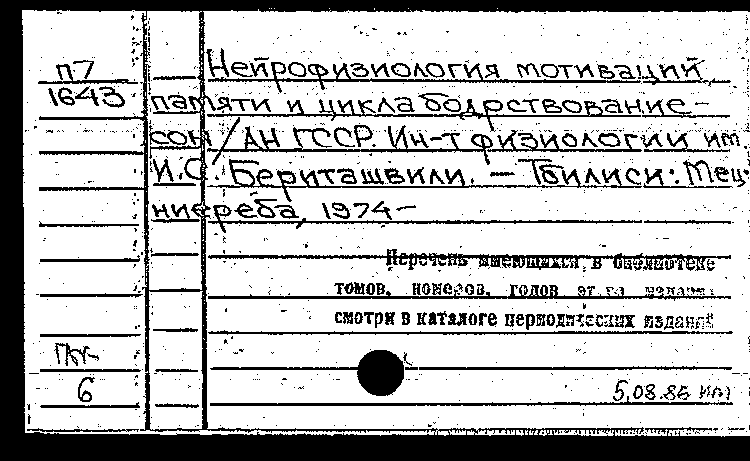 П7
1643
Нейрофизиология мотиваций,
памяти и цикла бодрствование -
сон / АН ГССР. Ин-т физиологии им.
И.С. Бериташвили. — Тбилиси: Мец-
ниереба, 1974 —
Перечень имеющихся в библиотеке
томов, номеров, годов этого издания
смотри в каталоге периодических изданий
6
5.08.86